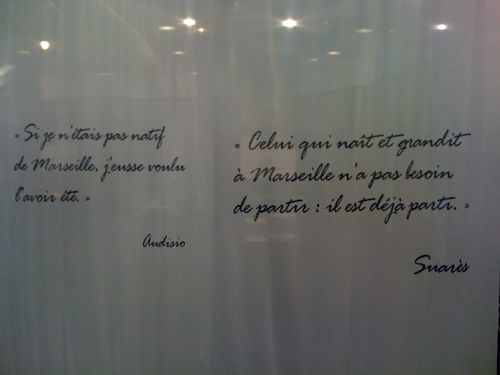 « Si je n'étais pas natif
de Marseille, j'eusse voulu
l'avoir été. »
Audisio
« Celui qui naît et grandit
à Marseille n'a pas besoin
de partir : il est déjà parti. »
Suarès